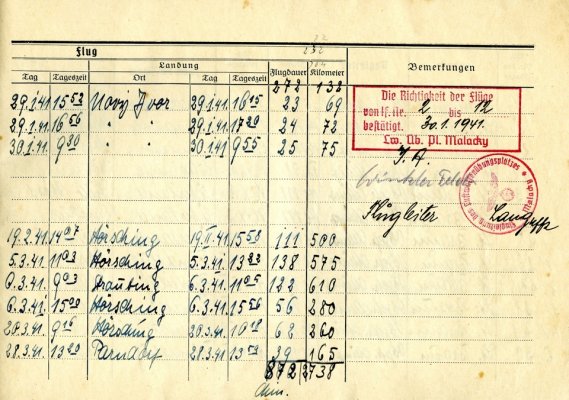 Flug
Landung
Tag Tageszeit Ort Tag Tageszeit Flugdauer Kilometer Bemerkungen
272 138
29.1.41 15 52 29.1.41 16 15 23 69
29.1.41 16 56 " " 29.1.41 17 20 24 72
30.1.41 9 30 " " 30.1.41 9 55 25 75
Die Richtigkeit der Flüge
von lf. Nr. 2 bis 12
bestätigt. 30.1.1941.
Lw. Üb. Pl. Malacky
I. A.
Flugleiter
19.2.41 14 07 Hörsching 19.II.41 15 58 111 500
5.3.41. 11 03 Hörsching 5.3.41 13 23 138 575
6.3.41 9 03 Straubing 6.3.41 11 05 122 610
6.3.41 15 00 Hörsching 6.3.41 15 56 56 280
20.3.41 9 16 Hörsching 20.3.41 10 18 62 260
28.3.41. 13 20 Parndorf 28.3.41 13 59 39 165
872 2738